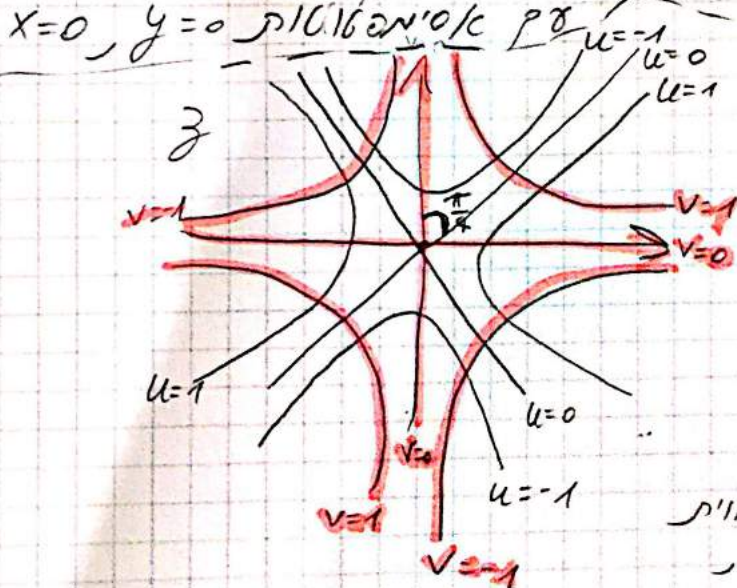 עם אסימפטוטות x=0, y=0
u=-1
u=0
u=1
z
π/4
v=1
v=1
v=0
u=1
u=0
v=0
u=-1
v=1
v=-1